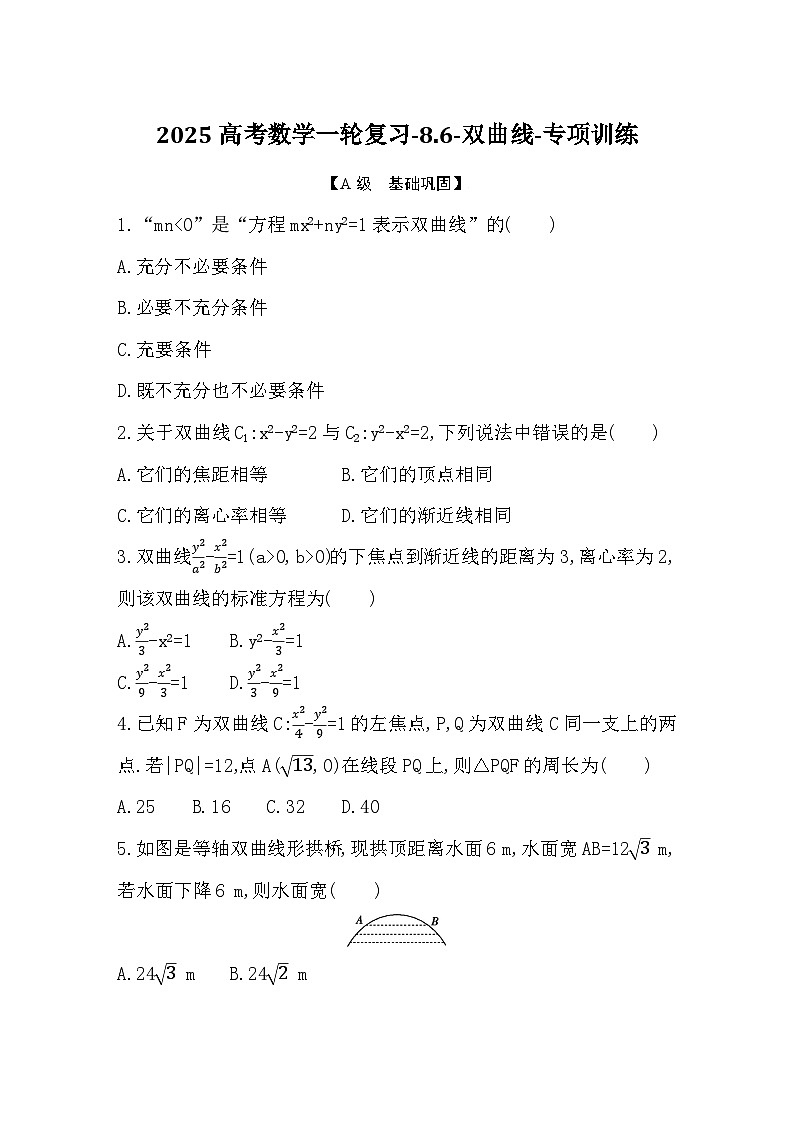 2025高考数学一轮复习-8.6-双曲线-专项训练
【A级　基础巩固】
1.“mn<0”是“方程mx²+ny²=1表示双曲线”的(　　)
A.充分不必要条件
B.必要不充分条件
C.充要条件
D.既不充分也不必要条件
2.关于双曲线C₁:x²-y²=2与C₂:y²-x²=2,下列说法中错误的是(　　)
A.它们的焦距相等　　B.它们的顶点相同
C.它们的离心率相等　　D.它们的渐近线相同
3.双曲线y²/a²-x²/b²=1(a>0,b>0)的下焦点到渐近线的距离为3,离心率为2,
则该双曲线的标准方程为(　　)
A.y²/3-x²=1　　B.y²-x²/3=1
C.y²/9-x²/3=1　　D.y²/3-x²/9=1
4.已知F为双曲线C:x²/4-y²/9=1的左焦点,P,Q为双曲线C同一支上的两
点.若|PQ|=12,点A(√13,0)在线段PQ上,则△PQF的周长为(　　)
A.25　　B.16　　C.32　　D.40
5.如图是等轴双曲线形拱桥,现拱顶距离水面6 m,水面宽AB=12√3 m,
若水面下降6 m,则水面宽(　　)
A B
A.24√3 m　　B.24√2 m